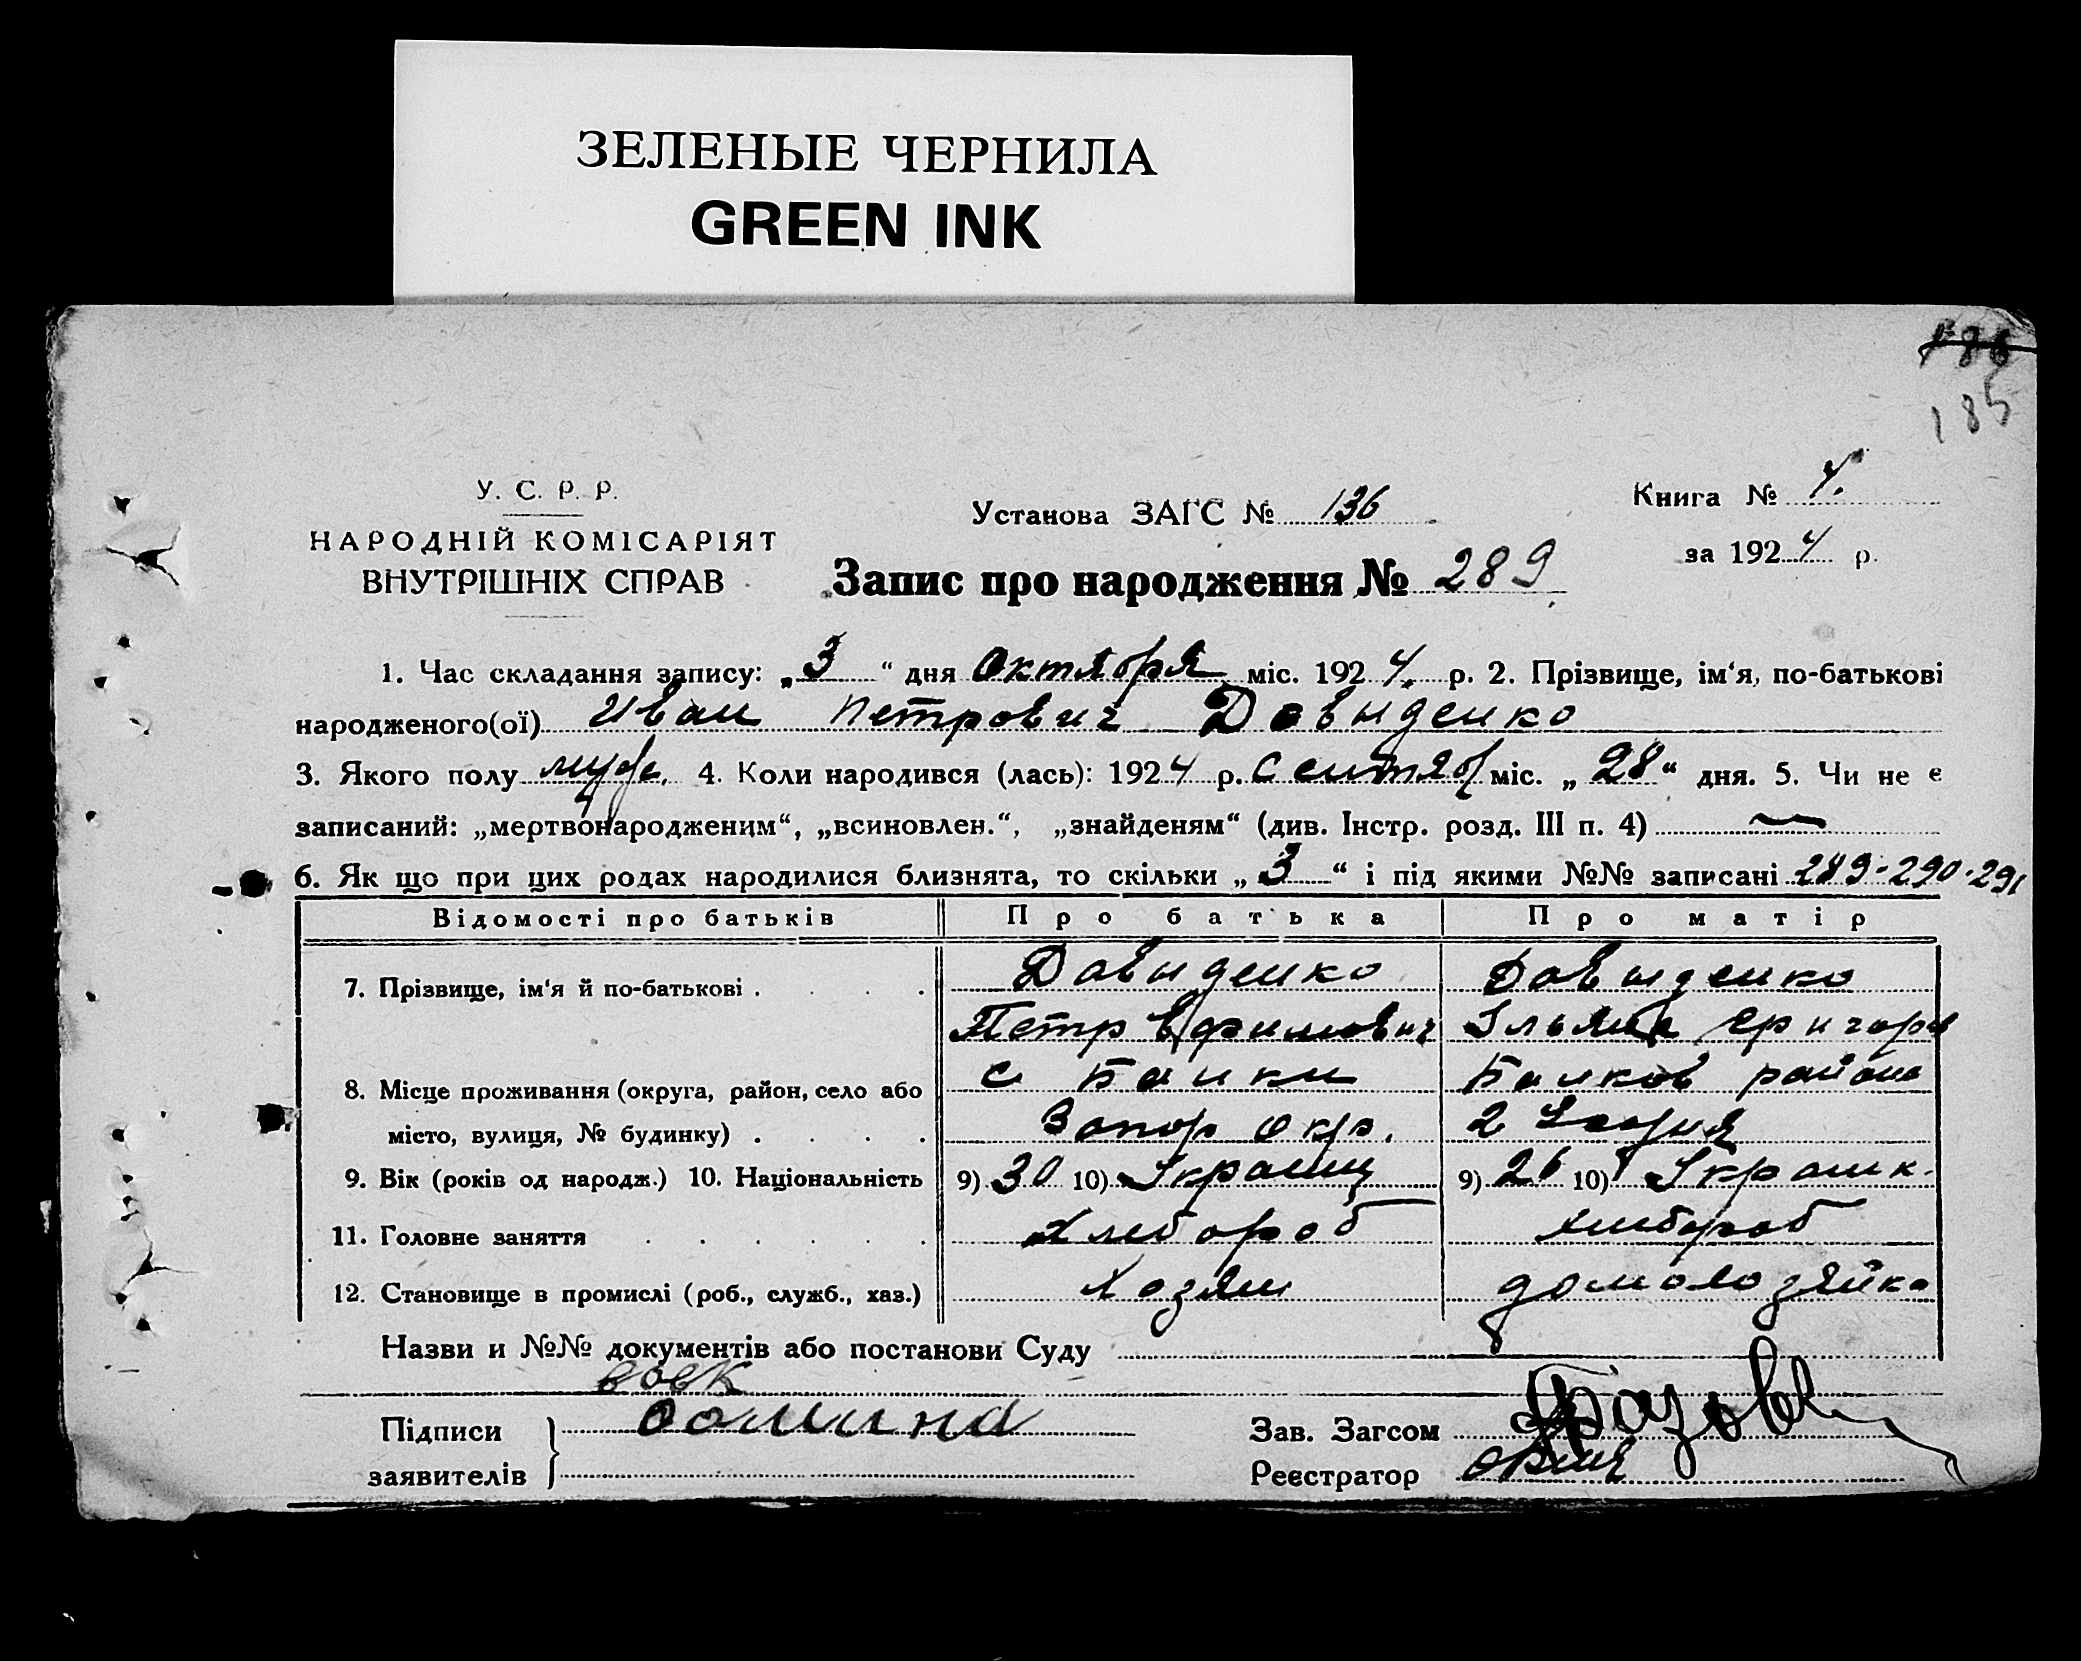 ЗЕЛЕНЫЕ ЧЕРНИЛА
GREEN INK
186
185
У. С. Р. Р.
НАРОДНІЙ КОМІСАРІЯТ
ВНУТРІШНІХ СПРАВ
Установа ЗАГС № 136
Книга № 4.
за 1924 р.
Запис про народження № 289
1. Час складання запису: „3“ дня Октября міс. 1924. р. 2. Прізвище, ім‘я, по-батькові
народженого(ої) Иван Петрович Давыденко
3. Якого полу муж. 4. Коли народився (лась): 1924 р. Сентяб міс. „28“ дня. 5. Чи не є
записаний: „мертвонародженим“, „всиновлен.“, „знайденям“ (див. Інстр. розд. III п. 4) —
6. Як що при цих родах народилися близнята, то скільки „3“ і під якими №№ записані 289-290-291
Відомості про батьків Про батька Про матір
7. Прізвище, ім‘я й по-батькові . . . . Давыденко Давыденко
Петр Григоров
8. Місце проживання (округа, район, село або с Балки Балков района
місто, вулиця, № будинку) . . . . Запор окр. 2
9. Вік (років од народж.) 10. Національність 9) 30 10) Украинц 9) 26 10) Украинк.
11. Головне заняття . . . . . . Хлебороб хлебороб
12. Становище в промислі (роб., служб., хаз.) Хозяин домохозяйка
Назви и №№ документів або постанови Суду
Підписи
заявителів
Зав. Загсом
Реєстратор